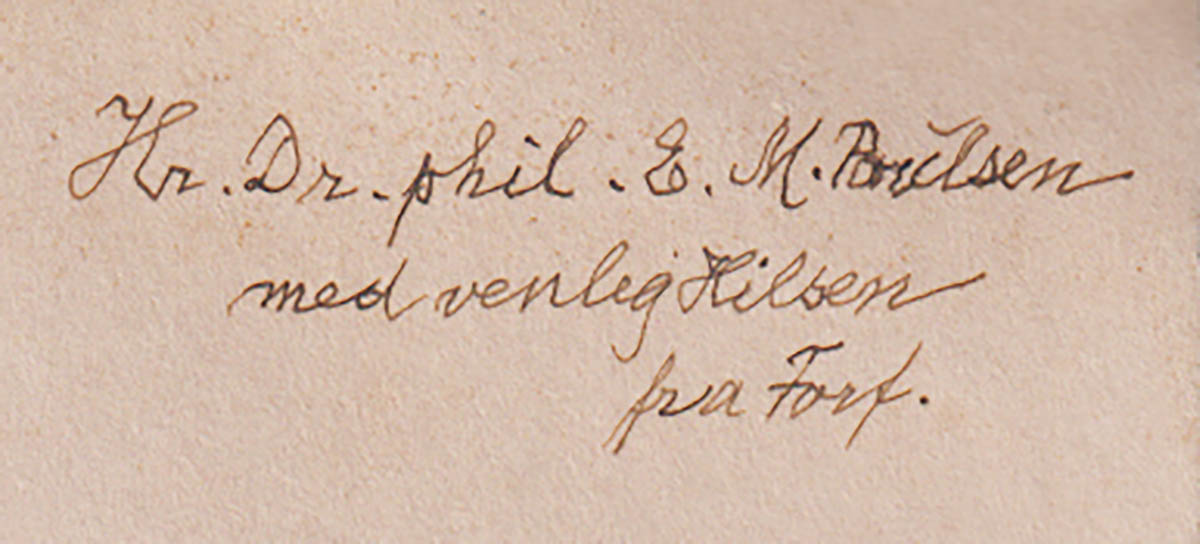 Hr. Dr. phil. E. M. Poulsen
med venlig Hilsen
fra Forf.